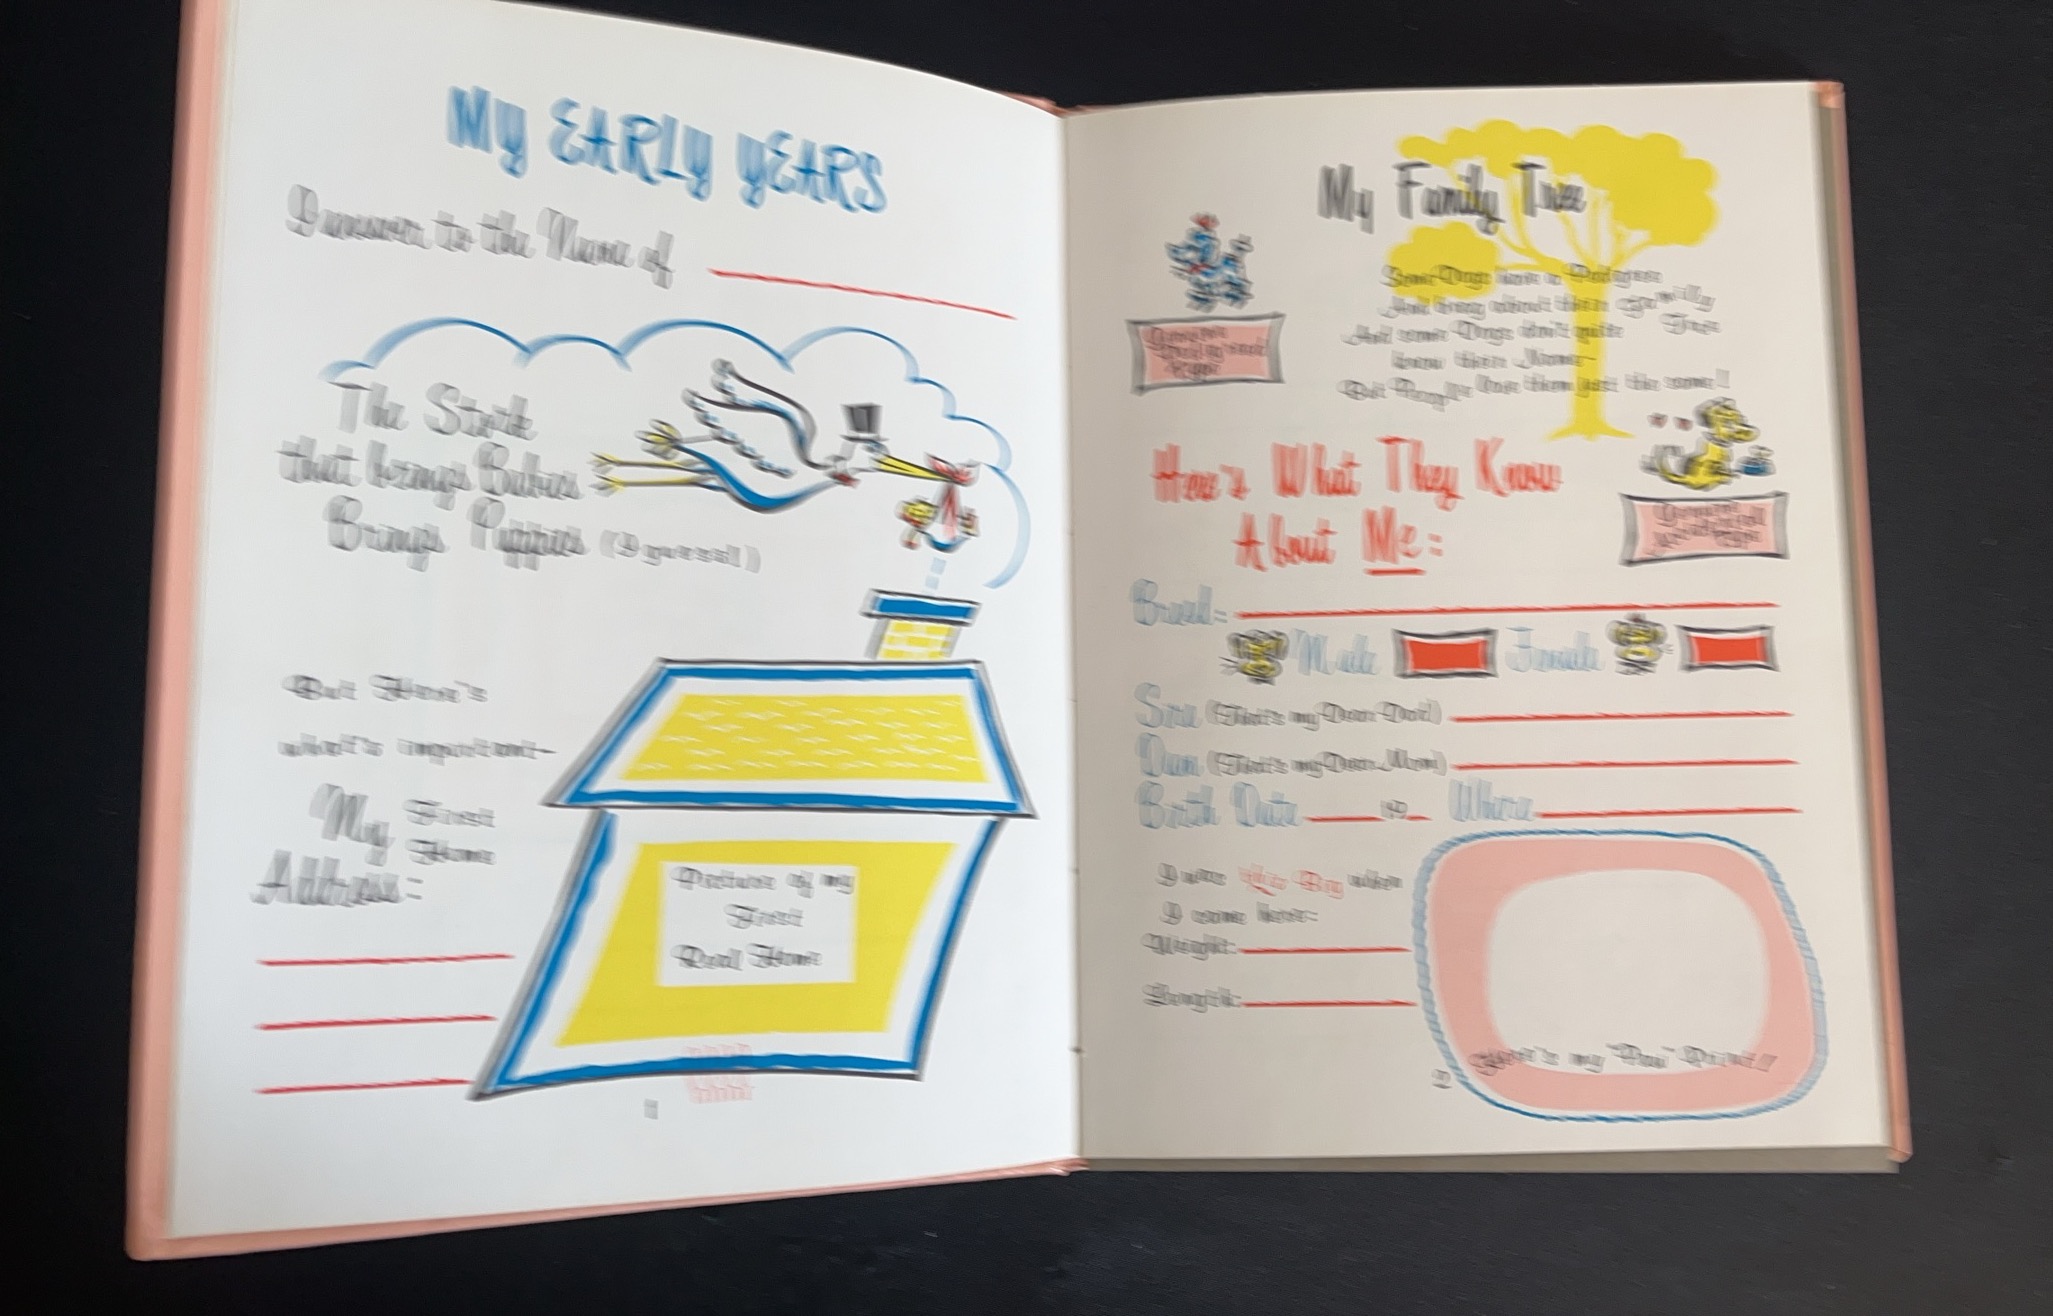 My EARLY YEARS
I answer to the Name of
The Stork
that brings Babies
Brings Puppies (I guess!)
But Here's
what's important-
My First
Home
Address:
Picture of my
First
Real Home
My Family Tree
Some Dogs have a Pedigree
And brag about their Family
Tree
And some Dogs don't quite
know their Name-
But People love them just the same!!
Here's What They Know
About Me:
Breed:
Male Female
Sire (That's my Dear Dad)
Dam (That's my Dear Mom)
Birth Date 19 Where
I was this Big when
I came here:
Weight:
Length:
Here's my "Paw" Print!!
2